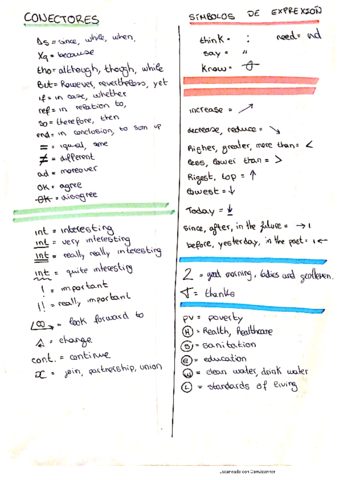 CONECTORES
As = since, while, when,
Xq = because
tho = although, though, while
But = however, nevertheless, yet
if = in case, whether
ref = in relation to,
so = therefore, then
end = in conclusion, to sum up
= = equal, same
≠ = different
ad = moreover
OK = agree
OK = disagree
int = interesting
int = very interesting
int = really, really interesting
int = quite interesting
! = important
!! = really, important
∠∞ → = look forward to
Δ = change
cont. = continue
x = join, partnership, union
SÍMBOLOS DE EXPRESIÓN
think = : need = nd
say = "
Know =
increase = ↗
decrease, reduce = ↘
Higher, greater, more than = <
less, lower than = >
Higest, top = ↑
Lowest = ↓
Today = ↓
since, after, in the future = → |
before, yesterday, in the past = | ←
2 = good morning, ladies and gentlemen.
T = thanks
pv = poverty
H = Health, healthcare
S = sanitation
e = education
w = clean water, drink water
L = standards of living
Escaneado con CamScanner